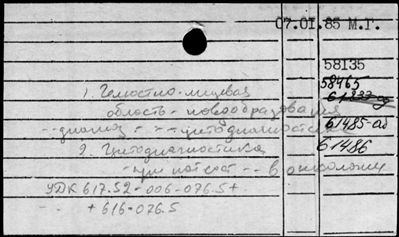 07.01.85 М.Г.
58135
58465
1. Челюстно-лицевая
область - новообразования
- - диагноз - - - цитодиагностика
61485-аб
2. Цитодиагностика
61486
- при - - в онкологии
УДК 617.52-006-076.5+
- - +616-076.5